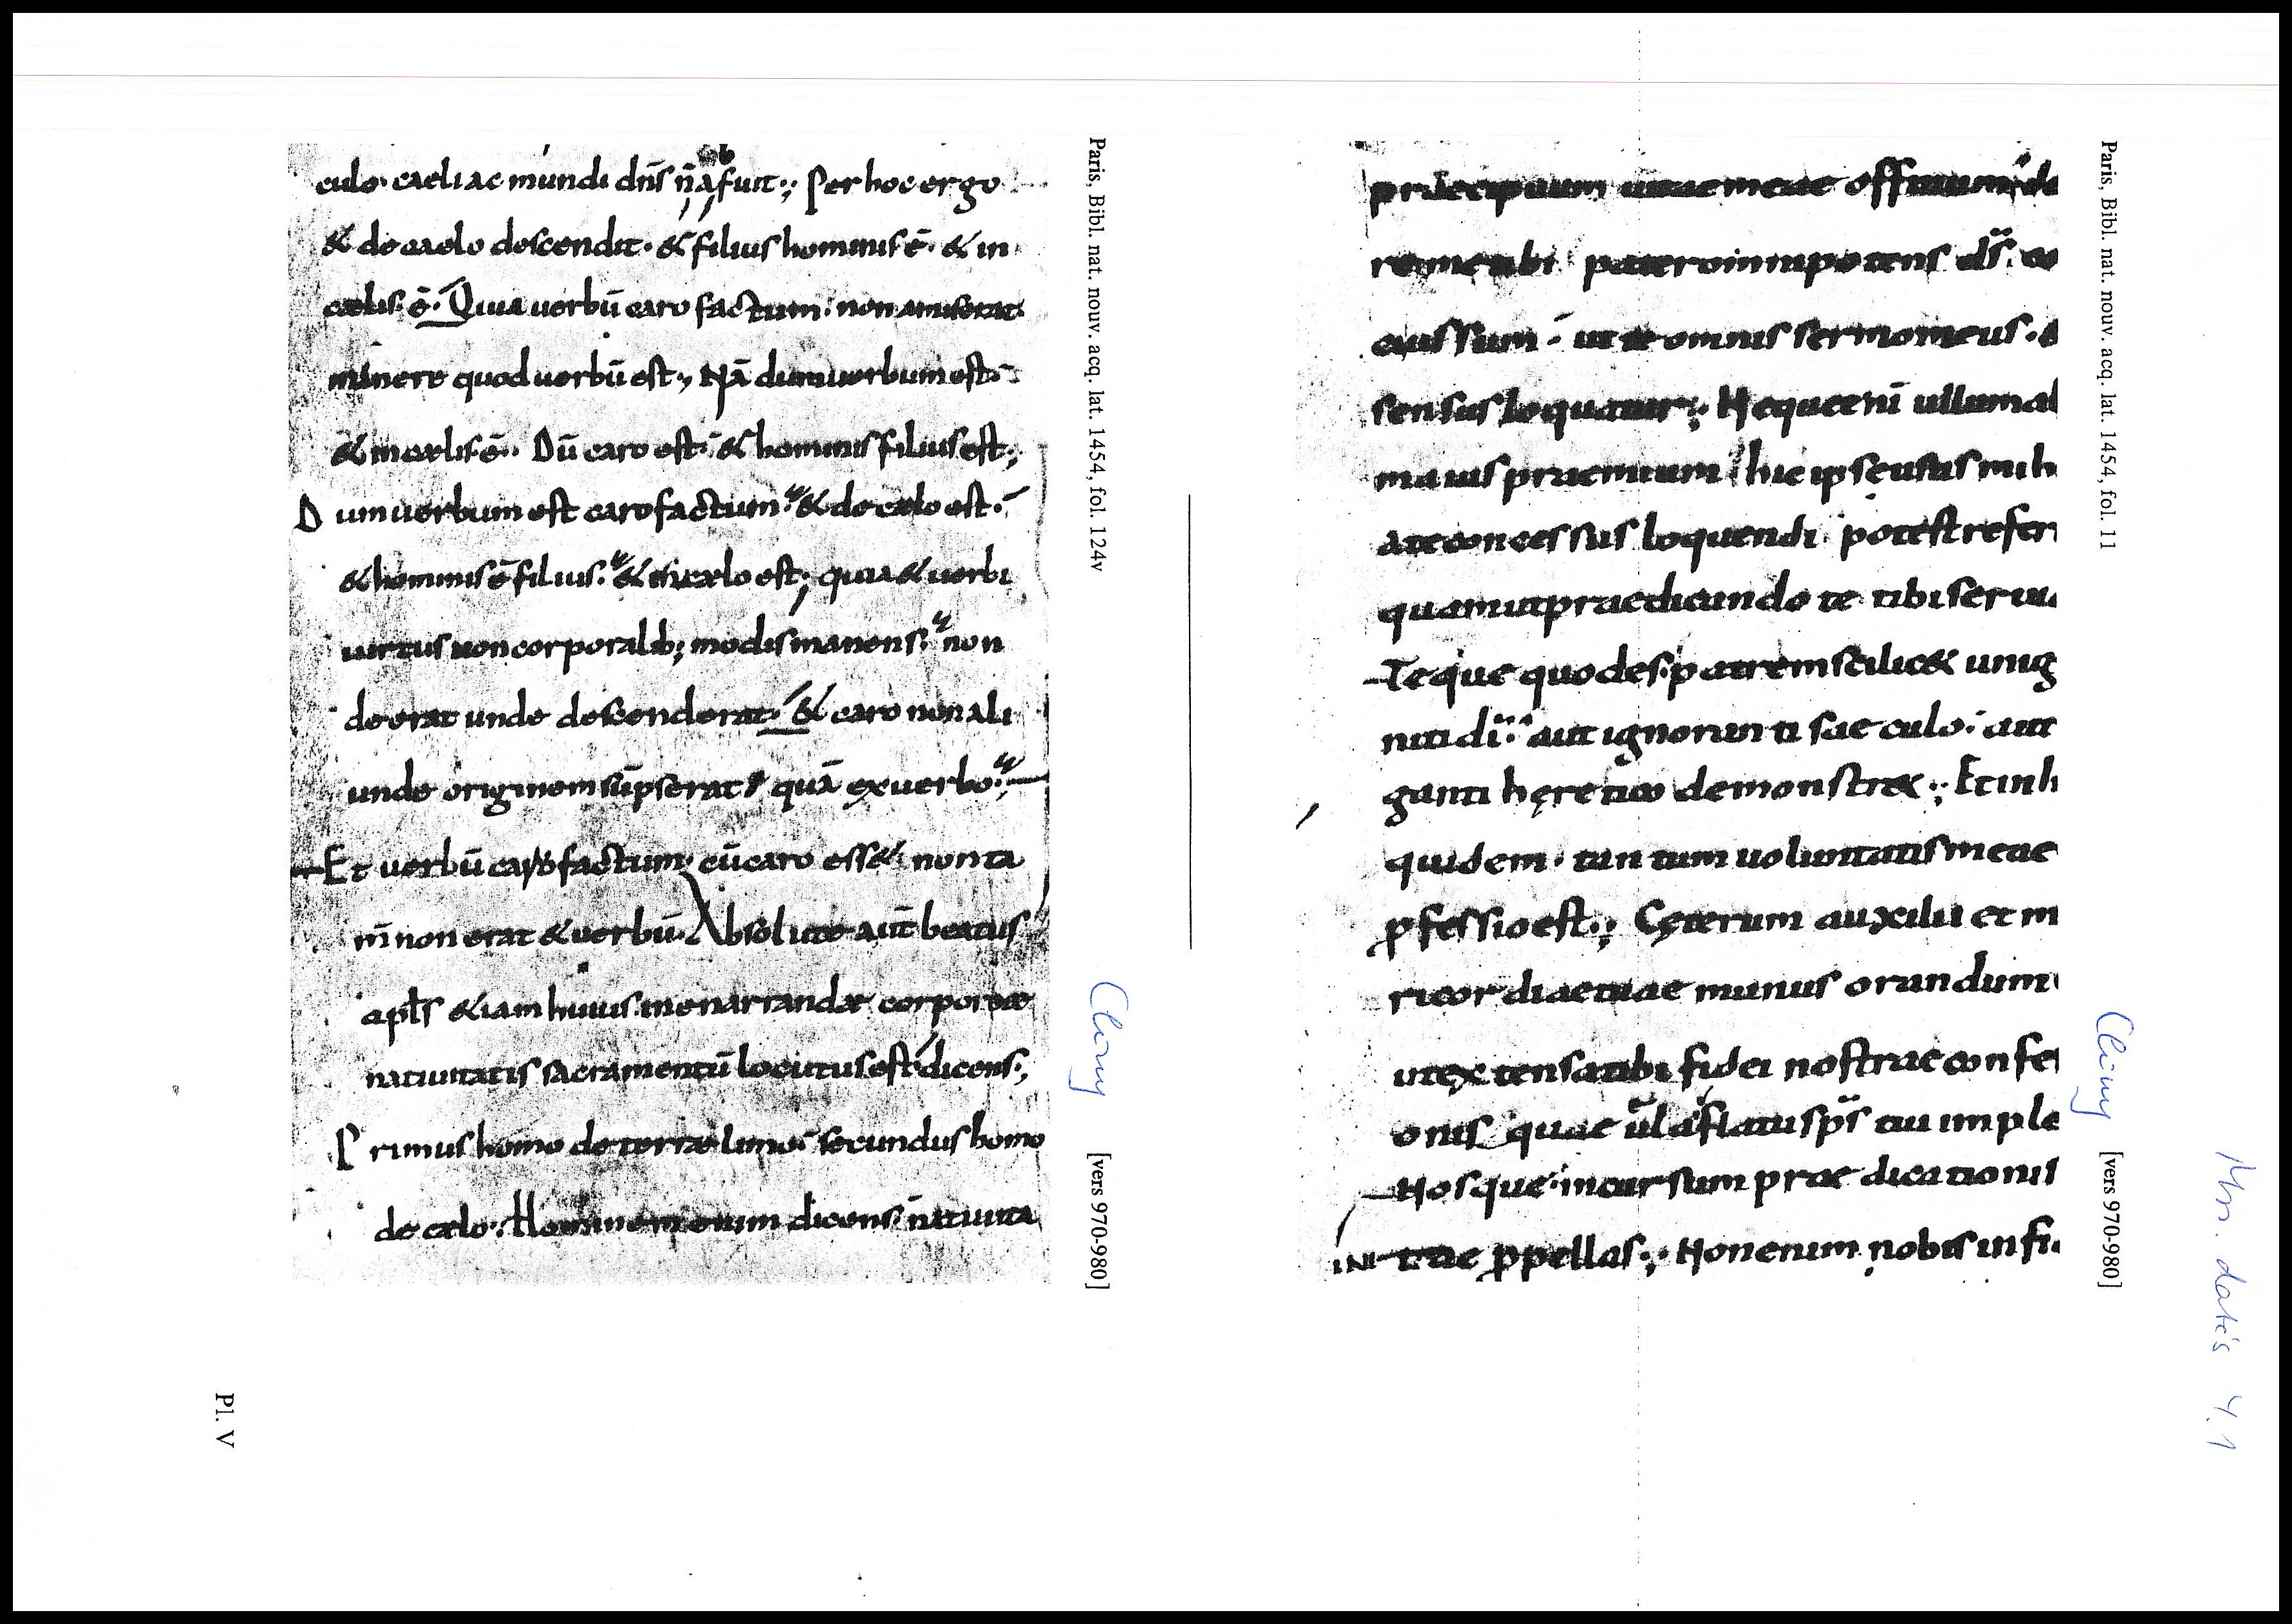 culo. caeli ac mundi dn̄s n̄ abfuit:; Per hoc ergo
& de caelo descendit. & filius hominis ē. & in
cęlis. ē. Quia uerbū caro factum. non amiserat
manere quod uerbū est; Nā dum uerbum est.
& in cęlis. ē. Dū caro est. & hominis filius est;
Dum uerbum est caro factum. & de cęlo est.
& hominis ē filius. & in cęlo est; quia & uerbi
uirtus non corporalib; modis manens. non
deerat unde descenderat. & caro non ali
unde originem sūpserat quā ex uerbo.
Et uerbū caro factum. cū caro ess&. non ta
m̄ non erat & uerbū. Absolute aut̄ beatus
apl̄s &iam huius inenarrandę corporeę
natiuitatis sacramentū locutus est dicens:;
Primus homo de terrę limo. secundus homo
de cęlo. Hominem enim dicens. natiuita
Paris, Bibl. nat. nouv. acq. lat. 1454, fol. 124v
Cluny
[vers 970-980]
Pl. V
praecipuum uitae meae officium de
reme tibi pater omnipotens ds̄.
ut te omnis sermo meus. &
sensus loquatur:; Neque enī ullum al
maius praemium hic ipse usus mih
a te concessus loquendi potest refer
quam ut praedicando te tibi serui
Teque quod es. patrem scilic& unig
niti di. aut ignoranti saeculo. aut
ganti hęretico demonstr&:; Et in h
quidem. tantum uoluntatis meae
ꝓfessio est:; Cęterum auxilii et m
ricordiae tuae munus orandum
ut extensa tibi fidei nostrae confe
onis quae uela flatu sp̄s tui imple
Nosque in cursum praedicationis
initae ꝓpellas:; Non enim nobis infi
Paris, Bibl. nat. nouv. acq. lat. 1454, fol. 11
Cluny
[vers 970-980]
Mn. datés 4.1